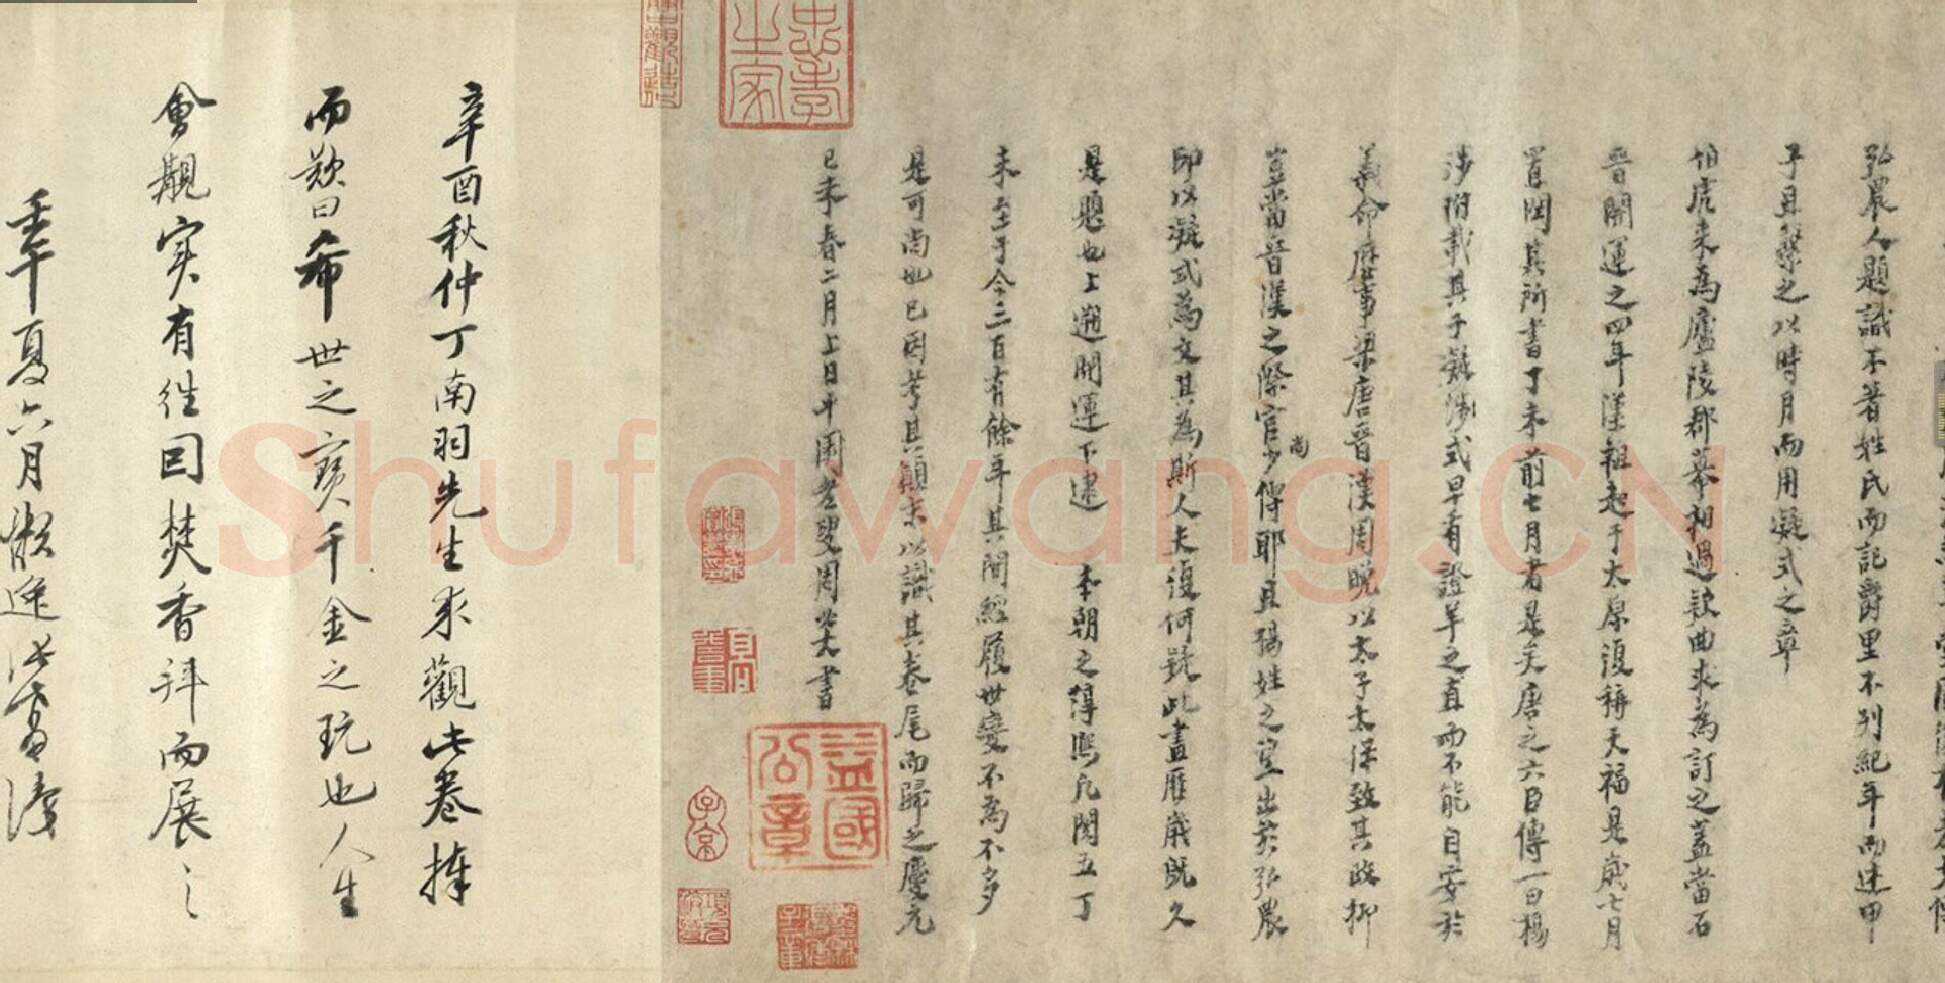 弘農人題識不著姓氏而記爵里不列紀年而建甲
子且繫之以時月而用凝式之章
伯虎來為廬陵郡幕相過款曲求為訂之蓋當石
晉開運之四年漢祖起于太原復稱天福是歲七月
置閏其所書丁未前七月者是矣唐之六臣傳一曰楊
涉附載其子凝式早有證羊之直而不能自安於
義命歷事梁唐晉漢周晚以太子太保致其政抑
豈當晉漢之際官尚少傅耶且楊姓之望出於弘農
即以凝式為文其為斯人夫復何疑此畫歷歲既久
是題也上遡開運下逮 本朝之淳熙凡閱五丁
未至于今三百有餘年其間經履世變不為不多
是可尚也已因考其顛末以識其卷尾而歸之慶元
己未春二月上日平園老叟周必大書
忠孝之家
益國公章
子京
辛酉秋仲丁南羽先生來觀此卷捧
而歎曰希世之寶千金之玩也人生
會覯实有往因焚香拜而展之
壬午夏六月
Shufawang.CN